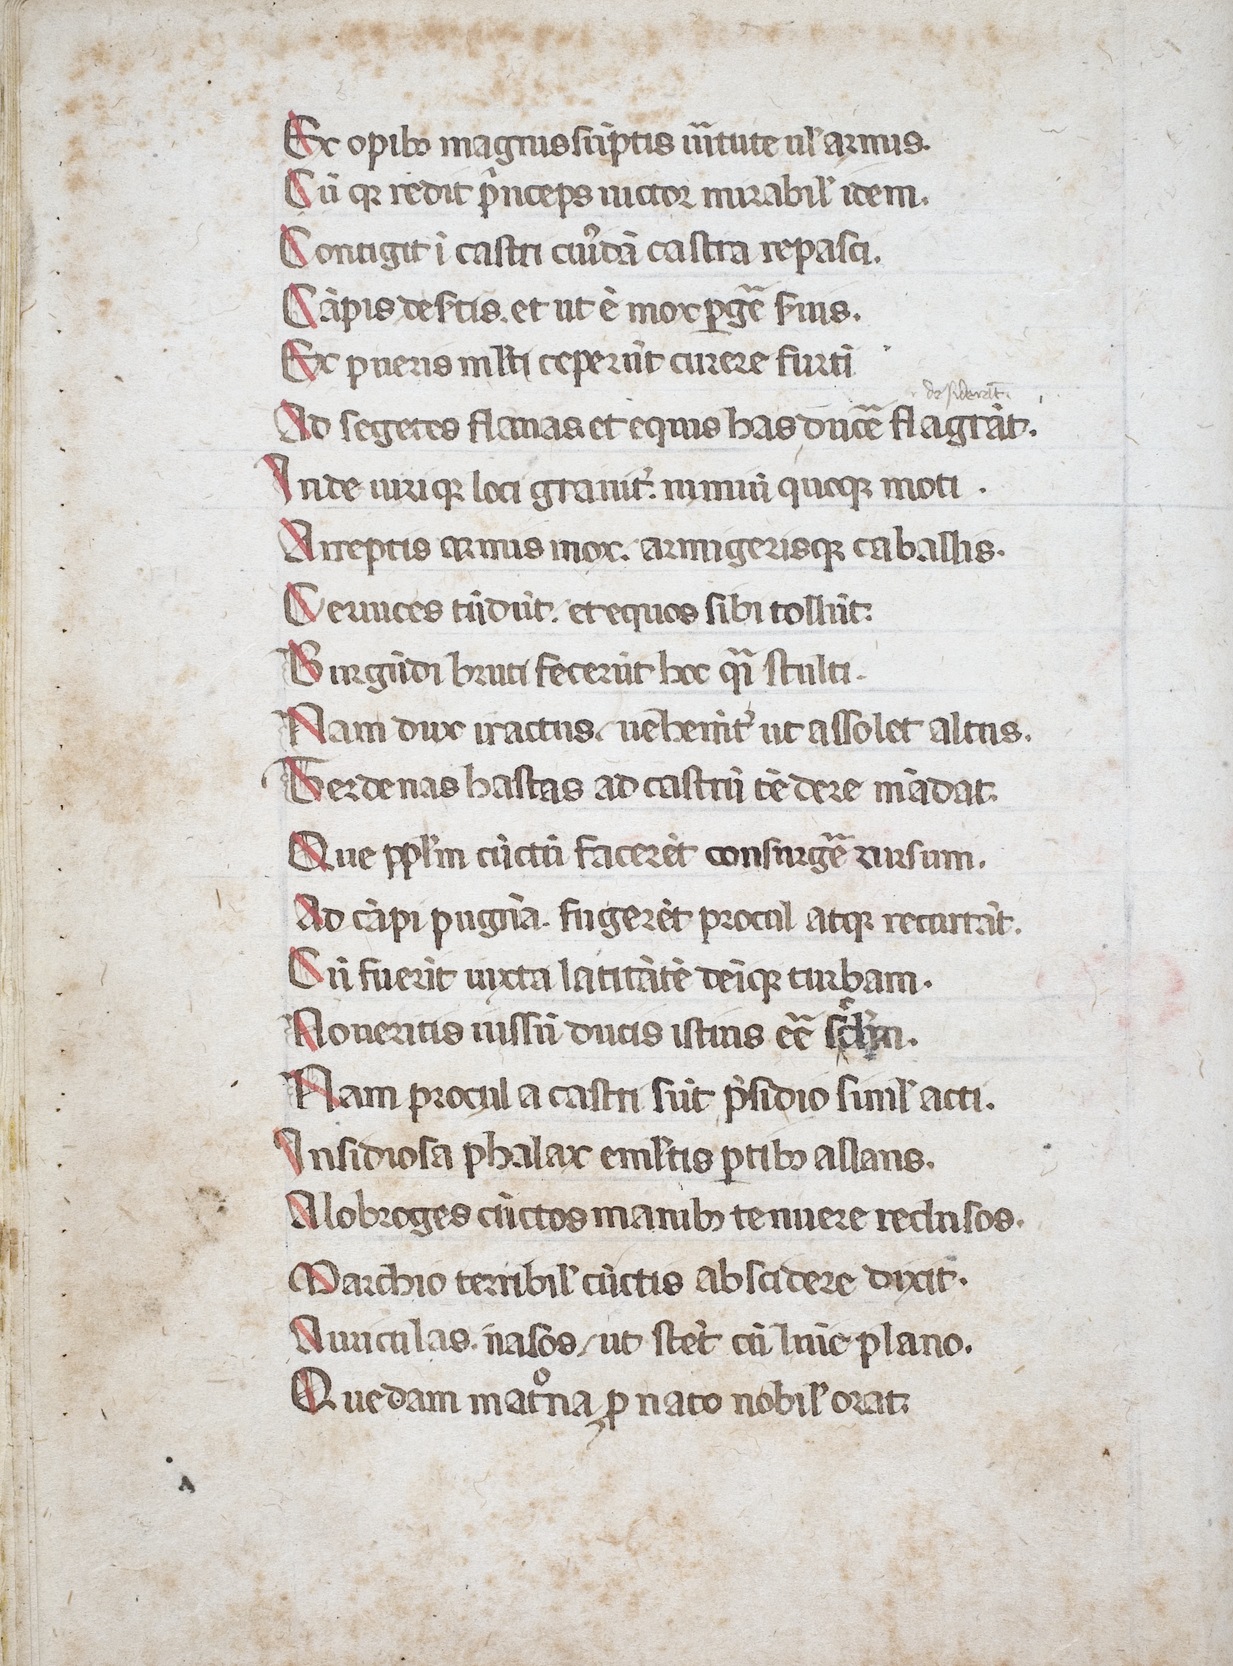 Ex opibꝫ magnus scͥptis uͥtute ul̕ armis.
Cū qꝫ redit pͥnceps uictor mirabil̕ idem.
Contigit ī castri cuiꝰdā castra repasci.
Cāpis desertis. et ut ē mox ꝑgē seruis.
Ex pueris ml̕ti ceperūt currere furti
desiderāt.
Ad segetes flauas. et equis has ducē flagrāt.
Inde uiri qꝫ loci grauit̕. nimiū quoqꝫ moti.
Arreptis armis mox. armigerisqꝫ caballis.
Ceruices tūdūt. et equos sibi tollūt.
Burgūdi bruti fecerūt hoc qͣi stulti.
Nam dux iratus, uehemīt̕ ut assolet altus.
Terdenas hastas ad castrū tēdere mādat.
Que ppl̕m cūctū facerēt consurgē rursum.
Ad cāpi pugnā. fugerēt procul atqꝫ recurrāt.
Cū fuerīt iuxta latitātē deīqꝫ turbam.
Noueritis iussū ducis istius eē
Nam procul a castri sūt pͥsidio simil̕ acti.
Insidiosa phalax eml̕tis ꝑtibꝫ astans.
Alobroges cūctos manibꝫ tenuere reclusos.
Marchio terribil̕ cūctis abscidere dixit.
Auriculas. nasos, ut stet̕ cū lumīe plano.
Quedam matͦna, ꝑ nato nobil̕ orat.